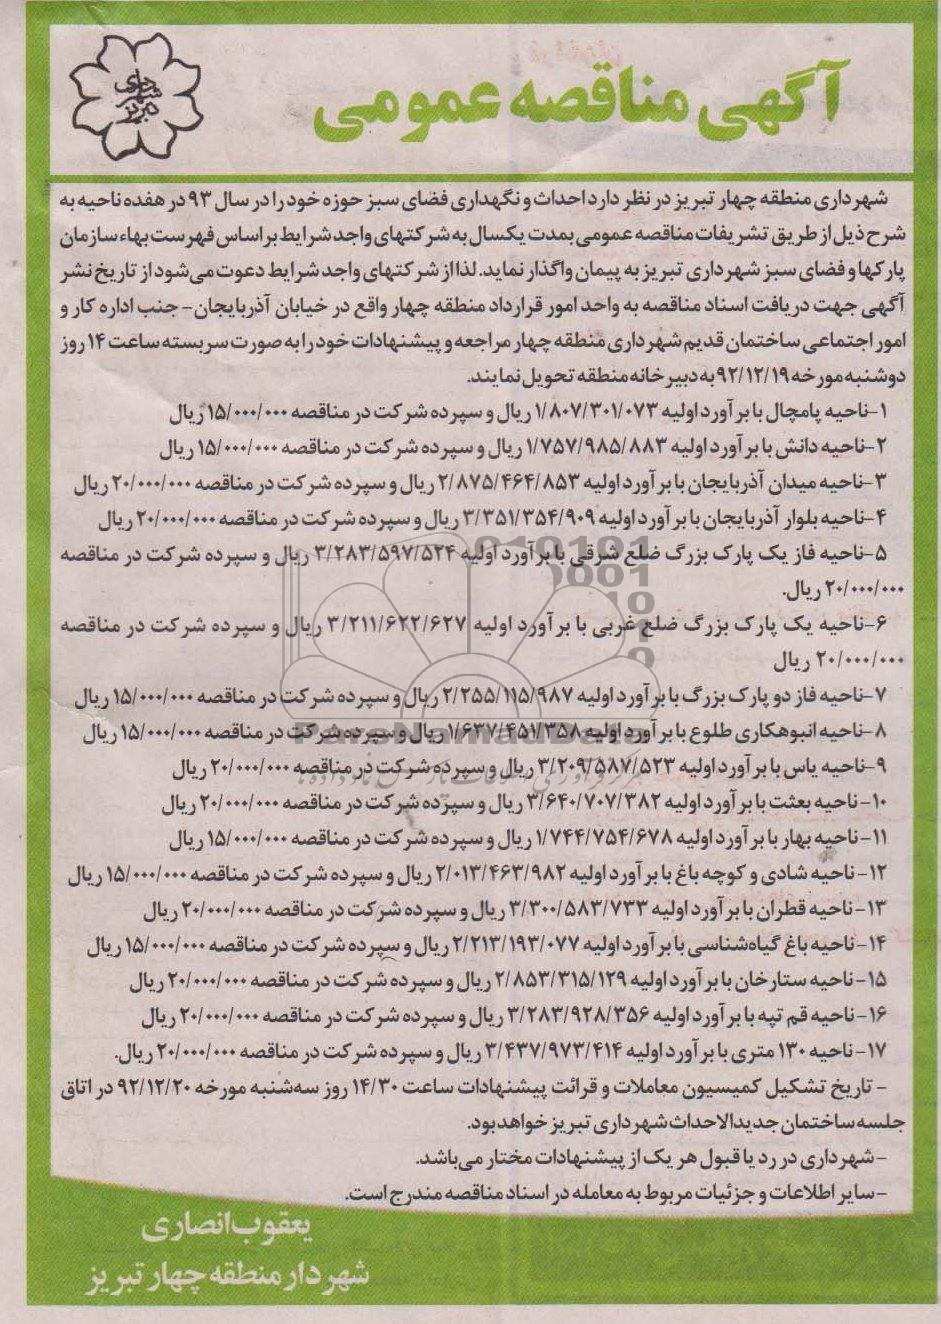 شهرداری تبریز
آگهی مناقصه عمومی
شهرداری منطقه چهار تبریز در نظر دارد احداث و نگهداری فضای سبز حوزه خود را در سال ۹۳ در هفده ناحیه به
شرح ذیل از طریق تشریفات مناقصه عمومی بمدت یکسال به شرکتهای واجد شرایط بر اساس فهرست بهاء سازمان
پارکها و فضای سبز شهرداری تبریز به پیمان واگذار نماید. لذا از شرکتهای واجد شرایط دعوت می‌شود از تاریخ نشر
آگهی جهت دریافت اسناد مناقصه به واحد امور قرارداد منطقه چهار واقع در خیابان آذربایجان - جنب اداره کار و
امور اجتماعی ساختمان قدیم شهرداری منطقه چهار مراجعه و پیشنهادات خود را به صورت سربسته ساعت ۱۴ روز
دوشنبه مورخه ۹۲/۱۲/۱۹ به دبیرخانه منطقه تحویل نمایند.
۱-ناحیه پامچال با برآورد اولیه ۱/۸۰۷/۳۰۱/۰۷۳ ریال و سپرده شرکت در مناقصه ۱۵/۰۰۰/۰۰۰ ریال
۲-ناحیه دانش با برآورد اولیه ۱/۷۵۷/۹۸۵/۸۸۳ ریال و سپرده شرکت در مناقصه ۱۵/۰۰۰/۰۰۰ ریال
۳-ناحیه میدان آذربایجان با برآورد اولیه ۲/۸۷۵/۴۶۴/۸۵۳ ریال و سپرده شرکت در مناقصه ۲۰/۰۰۰/۰۰۰ ریال
۴-ناحیه بلوار آذربایجان با برآورد اولیه ۳/۳۵۱/۳۵۴/۹۰۹ ریال و سپرده شرکت در مناقصه ۲۰/۰۰۰/۰۰۰ ریال
۵-ناحیه فاز یک پارک بزرگ ضلع شرقی با برآورد اولیه ۳/۲۸۳/۵۹۷/۵۲۴ ریال و سپرده شرکت در مناقصه
۲۰/۰۰۰/۰۰۰ ریال.
۶-ناحیه یک پارک بزرگ ضلع غربی با برآورد اولیه ۳/۲۱۱/۶۲۲/۶۲۷ ریال و سپرده شرکت در مناقصه
۲۰/۰۰۰/۰۰۰ ریال
۷-ناحیه فاز دو پارک بزرگ با برآورد اولیه ۲/۲۵۵/۱۱۵/۹۸۷ ریال و سپرده شرکت در مناقصه ۱۵/۰۰۰/۰۰۰ ریال
۸-ناحیه انبوهکاری طلوع با برآورد اولیه ۱/۶۳۷/۴۵۱/۳۵۸ ریال و سپرده شرکت در مناقصه ۱۵/۰۰۰/۰۰۰ ریال
۹-ناحیه یاس با برآورد اولیه ۳/۲۰۹/۵۸۷/۵۲۳ ریال و سپرده شرکت در مناقصه ۲۰/۰۰۰/۰۰۰ ریال
۱۰-ناحیه بعثت با برآورد اولیه ۳/۶۴۰/۷۰۷/۳۸۲ ریال و سپرده شرکت در مناقصه ۲۰/۰۰۰/۰۰۰ ریال
۱۱-ناحیه بهار با برآورد اولیه ۱/۷۴۴/۷۵۴/۶۷۸ ریال و سپرده شرکت در مناقصه ۱۵/۰۰۰/۰۰۰ ریال
۱۲-ناحیه شادی و کوچه باغ با برآورد اولیه ۲/۰۱۳/۴۶۳/۹۸۲ ریال و سپرده شرکت در مناقصه ۱۵/۰۰۰/۰۰۰ ریال
۱۳-ناحیه قطران با برآورد اولیه ۳/۳۰۰/۵۸۳/۷۳۳ ریال و سپرده شرکت در مناقصه ۲۰/۰۰۰/۰۰۰ ریال
۱۴-ناحیه باغ گیاه‌شناسی با برآورد اولیه ۲/۲۱۳/۱۹۳/۰۷۷ ریال و سپرده شرکت در مناقصه ۱۵/۰۰۰/۰۰۰ ریال
۱۵-ناحیه ستارخان با برآورد اولیه ۲/۸۵۳/۳۱۵/۱۲۹ ریال و سپرده شرکت در مناقصه ۲۰/۰۰۰/۰۰۰ ریال
۱۶-ناحیه قم تپه با برآورد اولیه ۳/۲۸۳/۹۲۸/۳۵۶ ریال و سپرده شرکت در مناقصه ۲۰/۰۰۰/۰۰۰ ریال
۱۷-ناحیه ۱۳۰ متری با برآورد اولیه ۳/۴۳۷/۹۷۳/۴۱۴ ریال و سپرده شرکت در مناقصه ۲۰/۰۰۰/۰۰۰ ریال.
- تاریخ تشکیل کمیسیون معاملات و قرائت پیشنهادات ساعت ۱۴/۳۰ روز سه‌شنبه مورخه ۹۲/۱۲/۲۰ در اتاق
جلسه ساختمان جدیدالاحداث شهرداری تبریز خواهد بود.
-شهرداری در رد یا قبول هر یک از پیشنهادات مختار می‌باشد.
-سایر اطلاعات و جزئیات مربوط به معامله در اسناد مناقصه مندرج است.
یعقوب انصاری
شهردار منطقه چهار تبریز
ParsNamadData